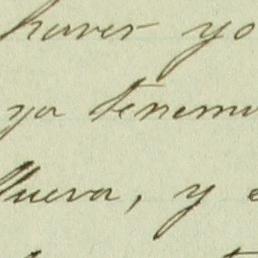 haver yo
ya tenemo
llueva, y e